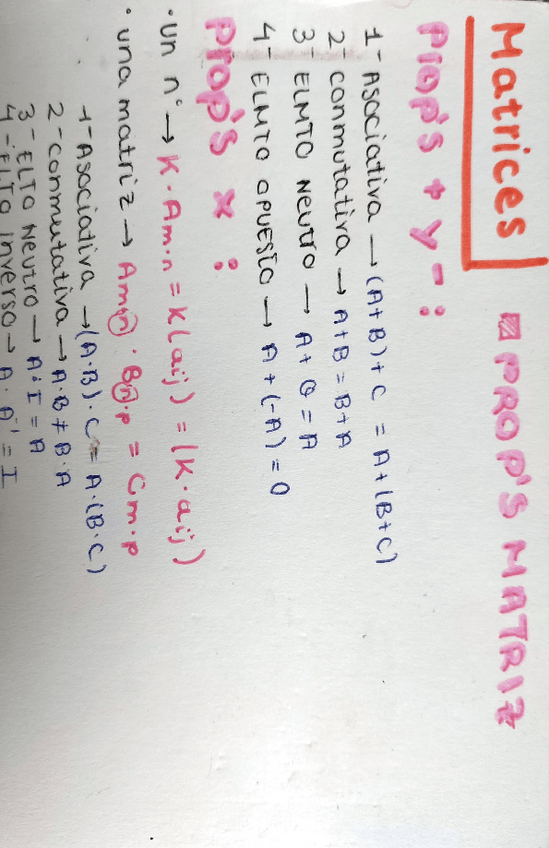 Matrices
PROP'S MATRIZ
Prop's + y - :
1- Asociativa → (A+B)+C = A+(B+C)
2- conmutativa → A+B = B+A
3- ELMTO Neutro → A + 0 = A
4- ELMTO OPUESTO → A + (-A) = 0
Prop's x :
· Un nº → K · Am·n = K(aij) = (K·aij)
· una matriz → Am·n · Bn·p = Cm·p
1- Asociativa → (A·B)·C = A·(B·C)
2- conmutativa → A·B ≠ B·A
3- ELTO Neutro → A·I = A
4- ELTO Inverso → A·A⁻¹ = I